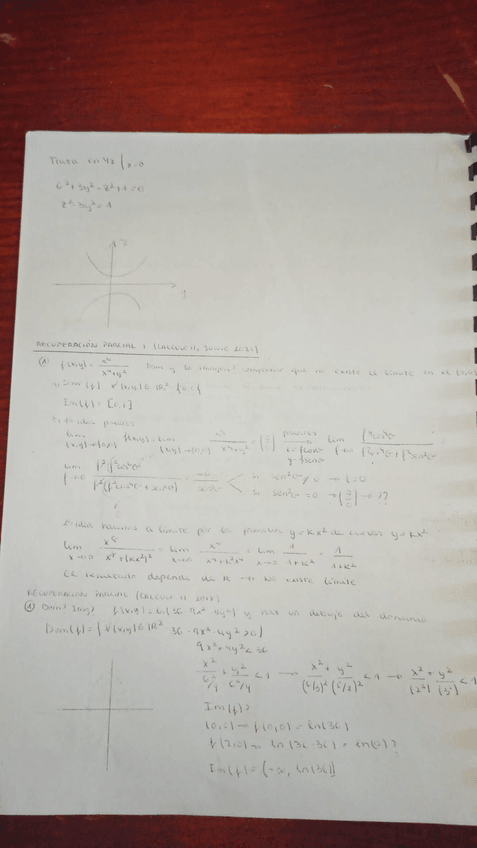 Traza en YZ (x=0
0²+3y²-z²+1=0
z²-3y²=1
z
y
RECUPERACIÓN PARCIAL 1 (CALCULO II, JUNIO
① f(x,y)= x⁴/(x⁴+y²) Dom y su imagen? comprobar que no existe el límite en el (0,0)
Dom(f) ∀(x,y)∈ℝ²-{0,0}
Im(f)=[0,1]
polares
lim (x,y)→(0,0) f(x,y)= lim (x,y)→(0,0) x⁴/(x⁴+y²) = [0/0] polares x=ρcosθ y=ρsenθ lim ρ→0 ρ⁴cos⁴θ/(ρ⁴cos⁴θ+ρ²sen²θ)
lim ρ→0 ρ²(ρ²cos⁴θ)/(ρ²(ρ²cos⁴θ+sen²θ)) = 0/sen²θ si sen²θ≠0 → L=0
si sen²θ=0 → [0/0] → ¿?
el límite por las parábolas y=Kx² de curvas y=Kx²
lim x→0 x⁴/(x⁴+(Kx²)²) = lim x→0 x⁴/(x⁴+K²x⁴) = lim x→0 1/(1+K²) = 1/(1+K²)
El resultado depende de K → No existe límite
RECUPERACIÓN PARCIAL (CALCULO II
① Dom? Img? f(x,y)=ln(36-9x²-4y²) y haz un dibujo del dominio
Dom(f)={∀(x,y)∈ℝ² 36-9x²-4y²>0}
9x²+4y²<36
x²/(6²/9)+y²/(6²/4)<1 → x²/(6/3)²+y²/(6/2)²<1 → x²/(2²)+y²/(3²)<1
Im(f)?
(0,0)→f(0,0)=ln(36)
f(2,0)=ln(36-36)=ln(0)?
Im(f)=(-∞, ln(36)]